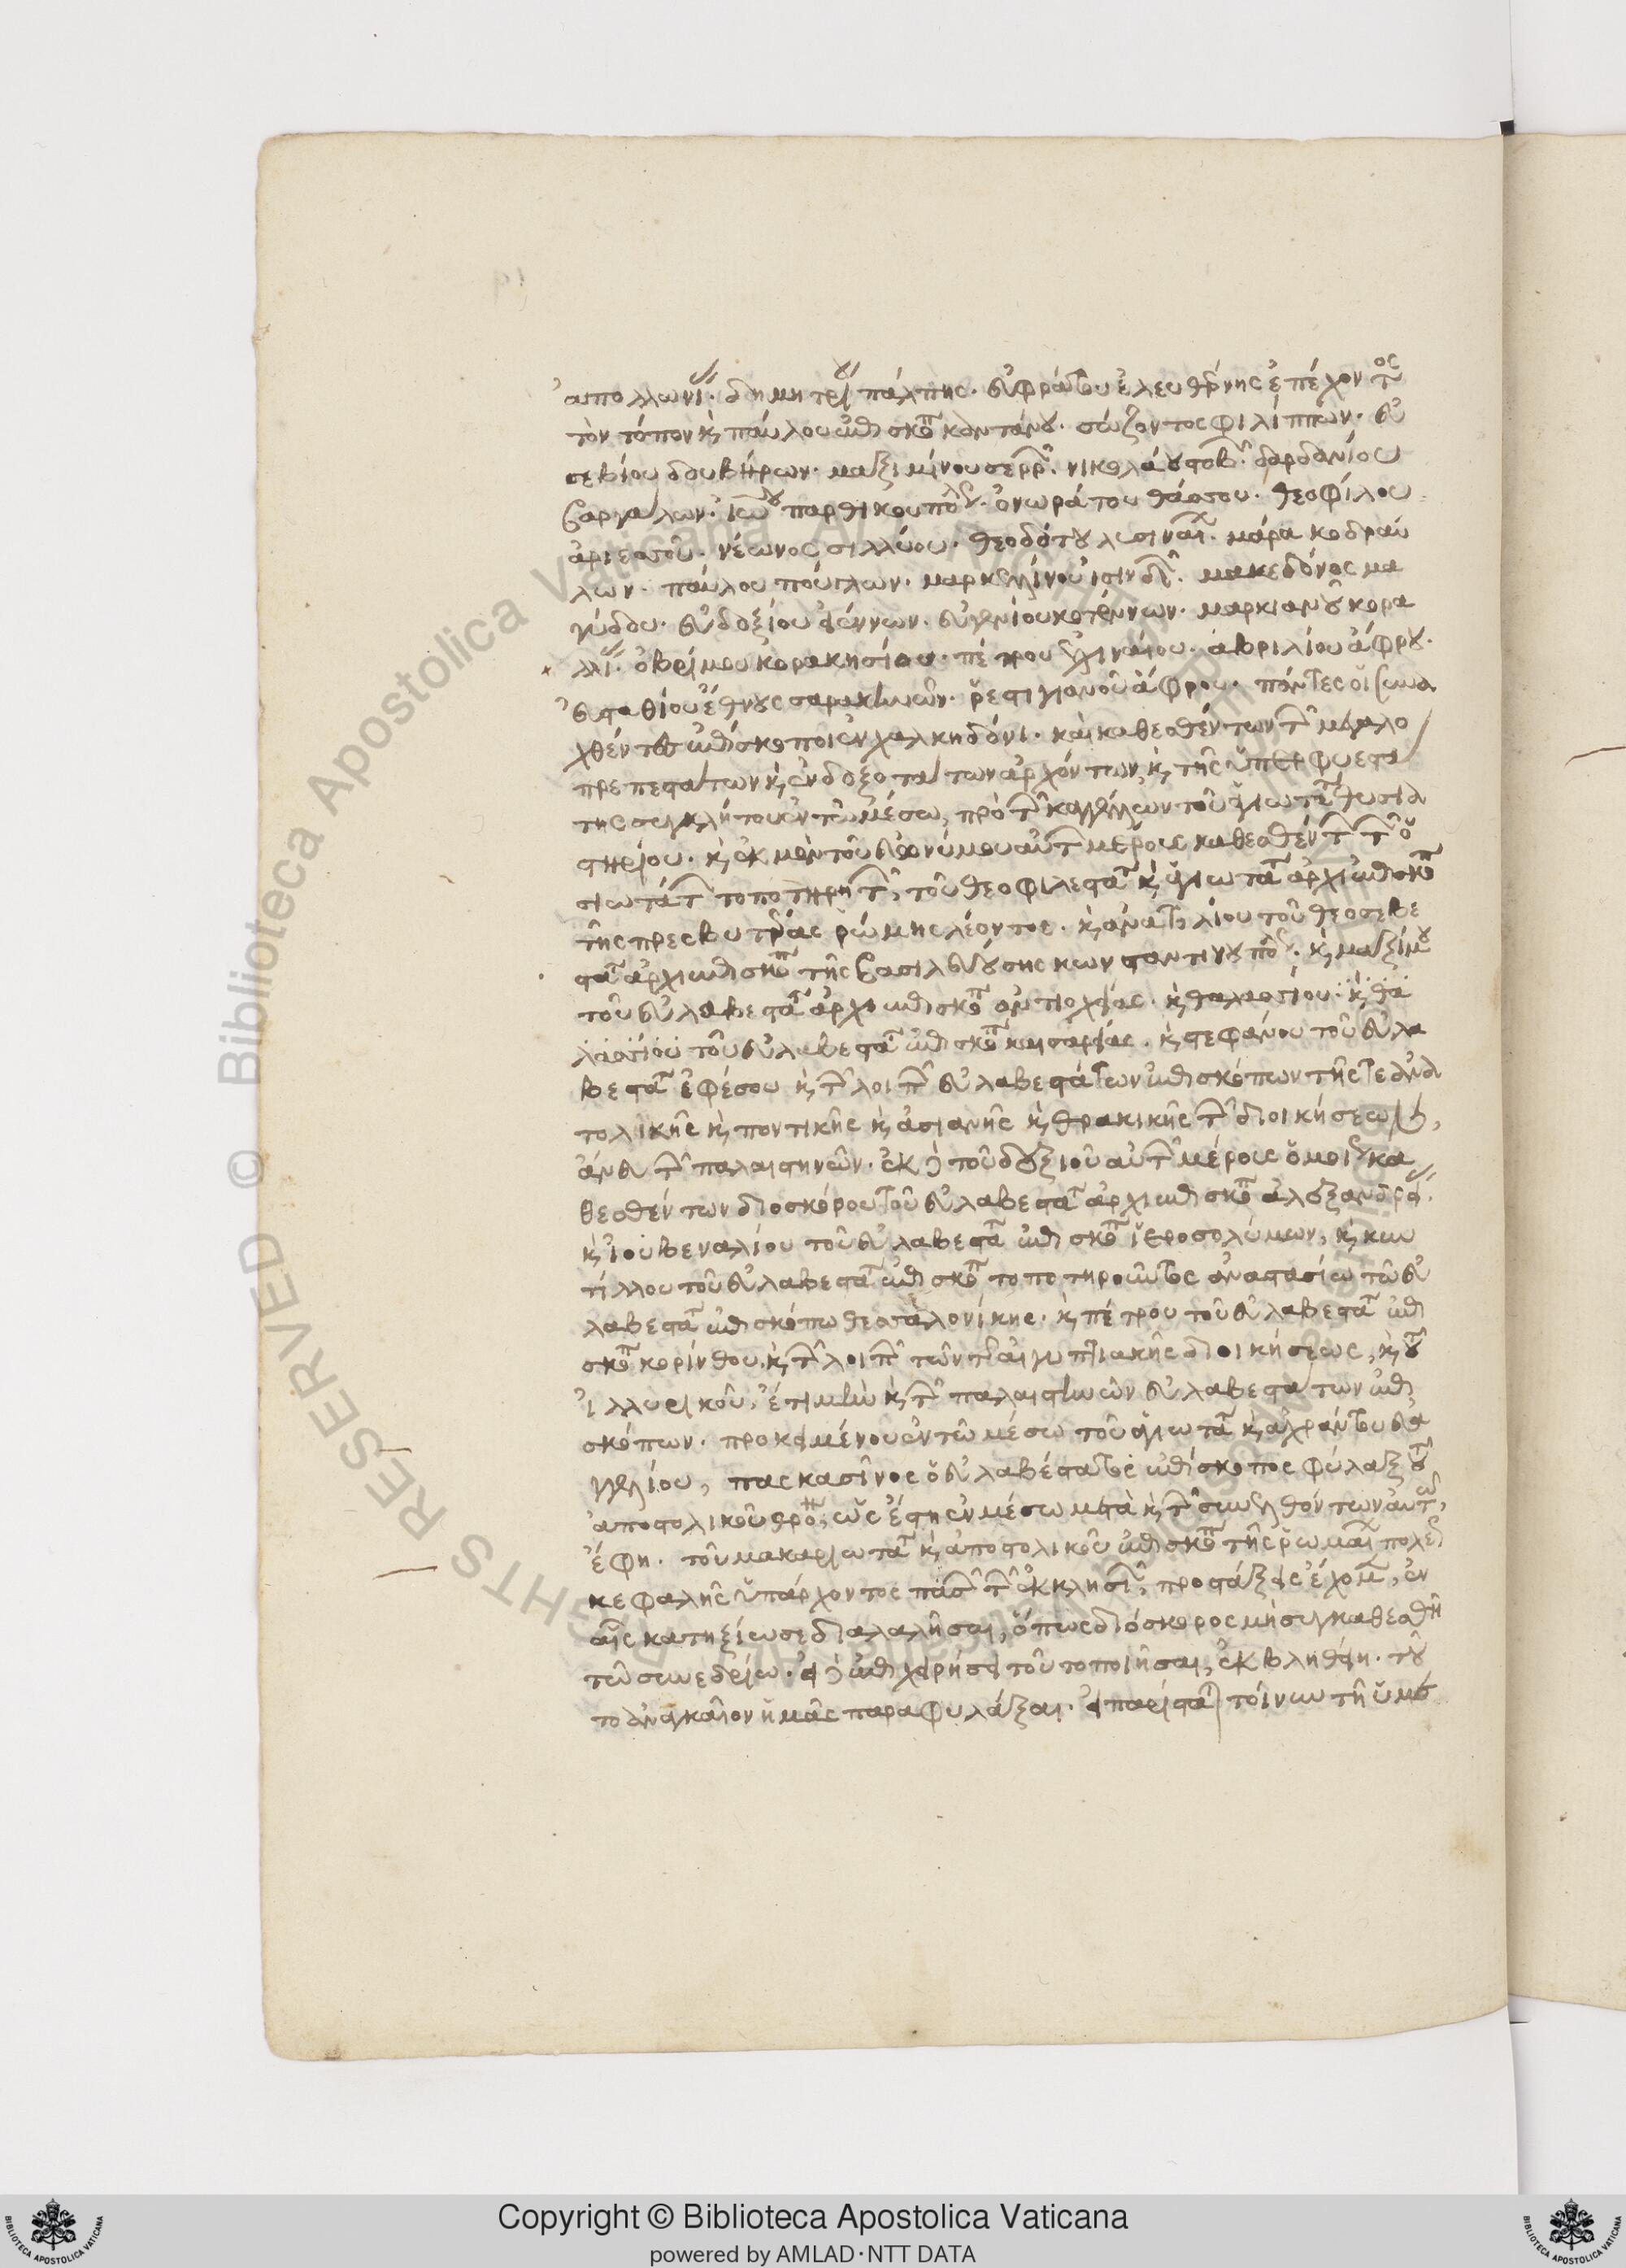 ἀπολλωνί. δημητρί πάλπης. εὐφράτου ἐλευθέρνης ἐπέχοντος
τὸν τόπον κ παύλου ἐπισκό καντάνου. σώζοντος φιλίππων. εὐ
σεβίου δουβήρων. μαξιμίνου σερρ. νικολάου στοβ. δαρδανίου
βαργάλων. ἰω παρθικουπό. ὀνωράτου θάσσου. θεοφίλου
ἀριεασοῦ. νέωνος σιλλύου. θεοδότου λυσιναι. μάρα κοδρού
λων. παύλου πούγλων. μαρκελλίνου ἰσινδ. μακεδόνος μα
γύδου. εὐδοξίου ἐτέννων. εὐγενίου κοτέννων. μαρκιανοῦ κορα
λλί. ὀβρίμου κορακησίου. πέτρου ἐχιναίου. ἀβριλίου ἄφρου.
εὐσταθίου ἔθνους σαρακηνῶν. ῥεστιγιανοῦ ἄφρου. πάντες οἱ συνα
χθέντες ἐπίσκοποι ἐν χαλκηδόνι. καὶ καθεσθέντων τ μεγαλο
πρεπεστάτων κ ἐνδοξοτάτων ἀρχόντων, κ τῆς ὑπερφυεστά
της συγκλήτου ἐν τῶ μέσω, πρὸ τ καγκέλλων τοῦ ἁγιωτ θυσια
στηρίου. κ ἐκ μὲν τοῦ εὐωνύμου αὐτ μέρους καθεσθέντ τ ὁ
σιωτάτ τοποτηρητ, τοῦ θεοφιλεστά κ ἁγιωτά ἀρχιεπισκό
τῆς πρεσβυτέρας ῥώμης λέοντος. κ ἀνατολίου τοῦ θεοσεβε
στά ἀρχιεπισκό τῆς βασιλευούσης κωνσταντινουπό. κ μαξίμου
τοῦ εὐλαβεστά ἀρχιεπισκό ἀντιοχείας. κ θαλασσίου. κ θα
λασσίου τοῦ εὐλαβεστά ἐπισκό καισαρείας. κ στεφάνου τοῦ εὐλα
βεστά ἐφέσου κ τ λοιπ εὐλαβεστάτων ἐπισκόπων τῆς τε ἀνα
τολικῆς κ ποντικῆς κ ἀσιανῆς κ θρακικῆς τ διοικήσεων,
ἄνευ τ παλαιστηνῶν. ἐκ δὲ τοῦ δεξιοῦ αὐτ μέρους ὁμοί κα
θεσθέντων διοσκόρου τοῦ εὐλαβεστά ἀρχιεπισκό ἀλεξανδρεί.
κ ἰουβεναλίου τοῦ εὐλαβεστά ἐπισκό ἱεροσολύμων, κ κυν
τίλλου τοῦ εὐλαβεστά ἐπισκό τοποτηροῦντος ἀναστασίω τῶ εὐ
λαβεστά ἐπισκόπω θεσσαλονίκης. κ πέτρου τοῦ εὐλαβεστά ἐπι
σκό κορίνθου. κ τ λοιπ τῶν τ αἰγυπτιακῆς διοικήσεως, κ τοῦ
ἰλλυρικοῦ. ἔτι μὴν κ τ παλαιστινῶν εὐλαβεστάτων ἐπι
σκόπων. προκειμένου ἐν τῶ μέσω τοῦ ἁγιωτά κ ἀχράντου εὐα
γγελίου, πασκασῖνος ὁ εὐλαβέστατος ἐπίσκοπος φύλαξ τοῦ
ἀποστολικοῦ θρό, ὡς ἔστη ἐν μέσω μετὰ κ τ συνελθόντων αὐτῶ,
ἔφη. τοῦ μακαριωτά κ ἀποστολικοῦ ἐπισκό τῆς ῥωμαί πόλε
κεφαλῆς ὑπάρχοντος πασ τ ἐκκλησι, προστάξεις ἔχομ, ἐν
αἷς κατηξίωσε διαλαλῆσαι, ὅπως διόσκορος μὴ συγκαθεσθῆ
τῶ συνεδρίω. εἰ δὲ ἐπιχειρήσει τοῦτο ποιῆσαι, ἐκβληθείη. τοῦ
το ἀναγκαῖον ἡμᾶς παραφυλάξαι. εἰ παρίστα τοίνυν τῆ ὑμε
Copyright © Biblioteca Apostolica Vaticana
powered by AMLAD·NTT DATA